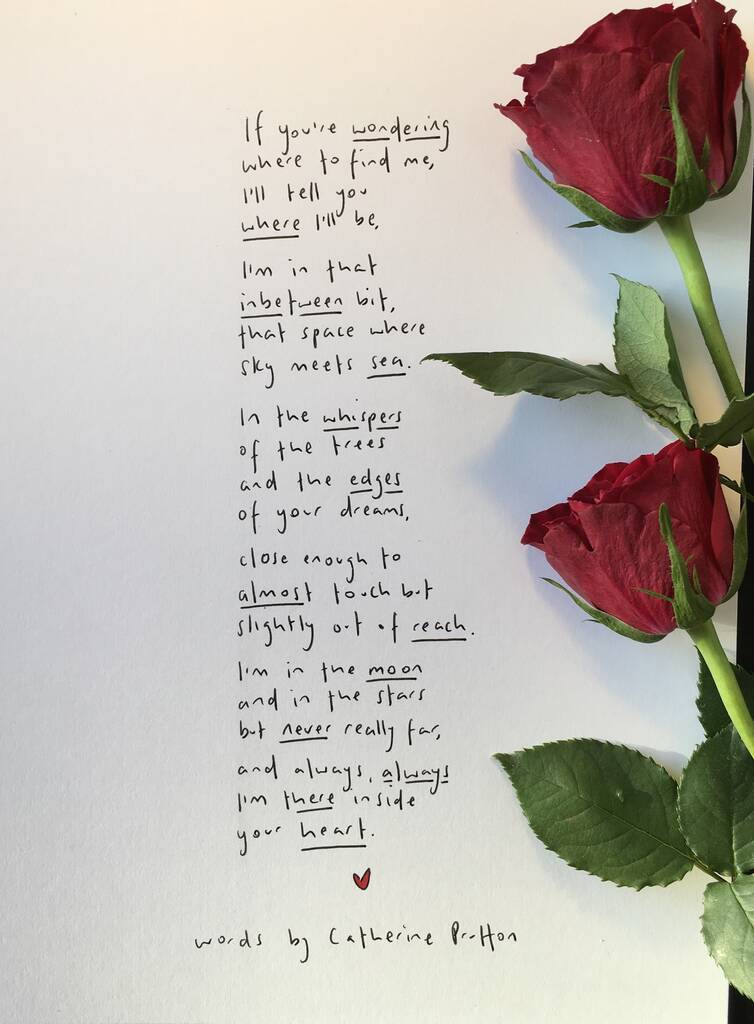 If you're wondering
where to find me,
I'll tell you
where I'll be,
I'm in that
inbetween bit,
that space where
sky meets sea.
In the whispers
of the trees
and the edges
of your dreams,
close enough to
almost touch but
slightly out of reach.
I'm in the moon
and in the stars
but never really far,
and always, always
I'm there inside
your heart.
words by Catherine Prutton